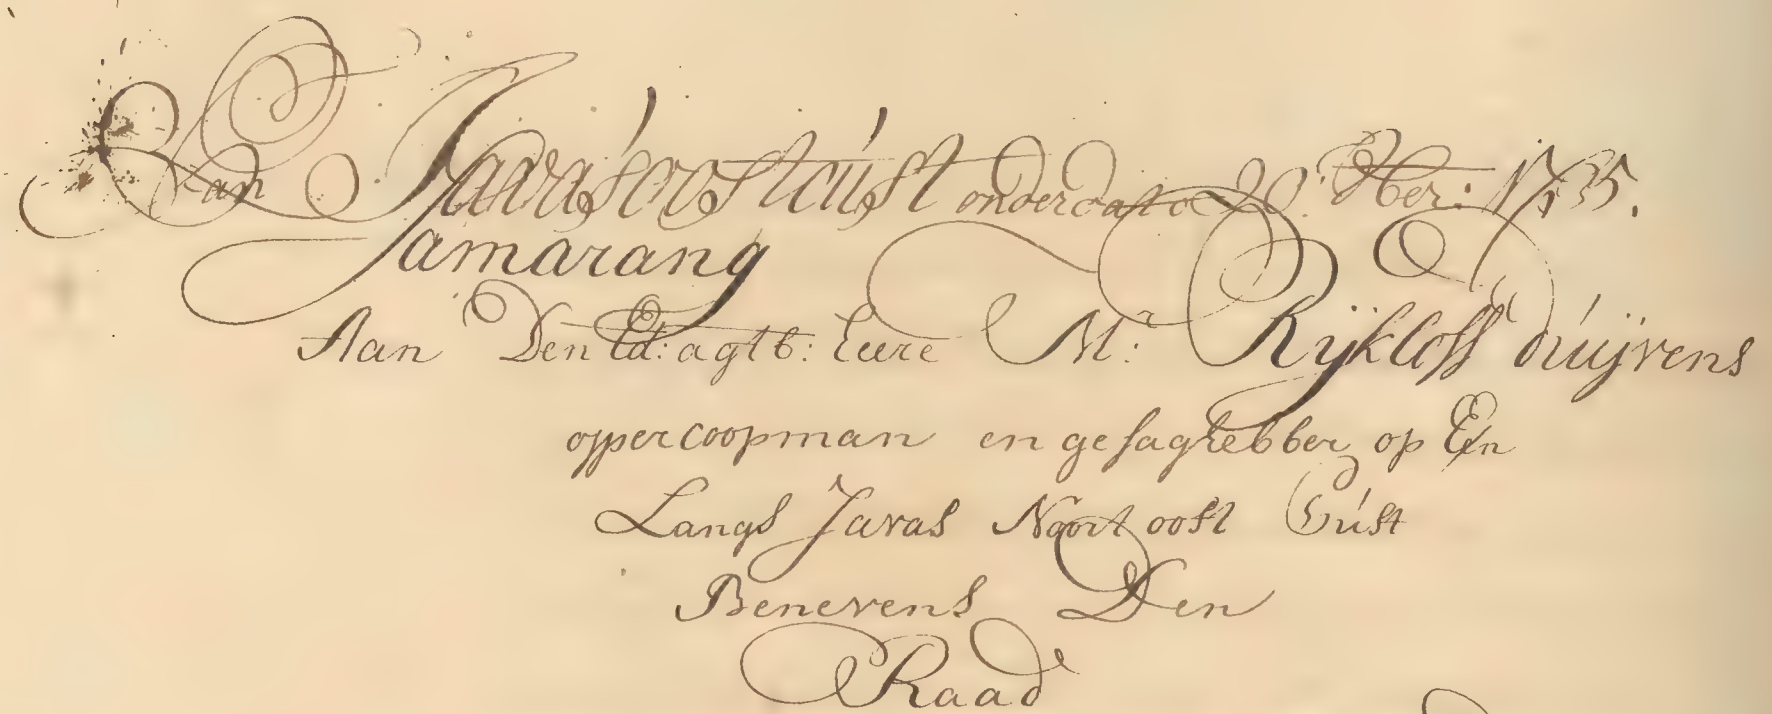 Van Javas oostcust onder dato 20: Xber: 1735.
Samarang
Aan Den Ed: agtb: Eere Mr: Rijkloff duijvens
oppercoopman en gesaghebber op En
Langs Javas Noort oost Cust
Benevens Den
Raad